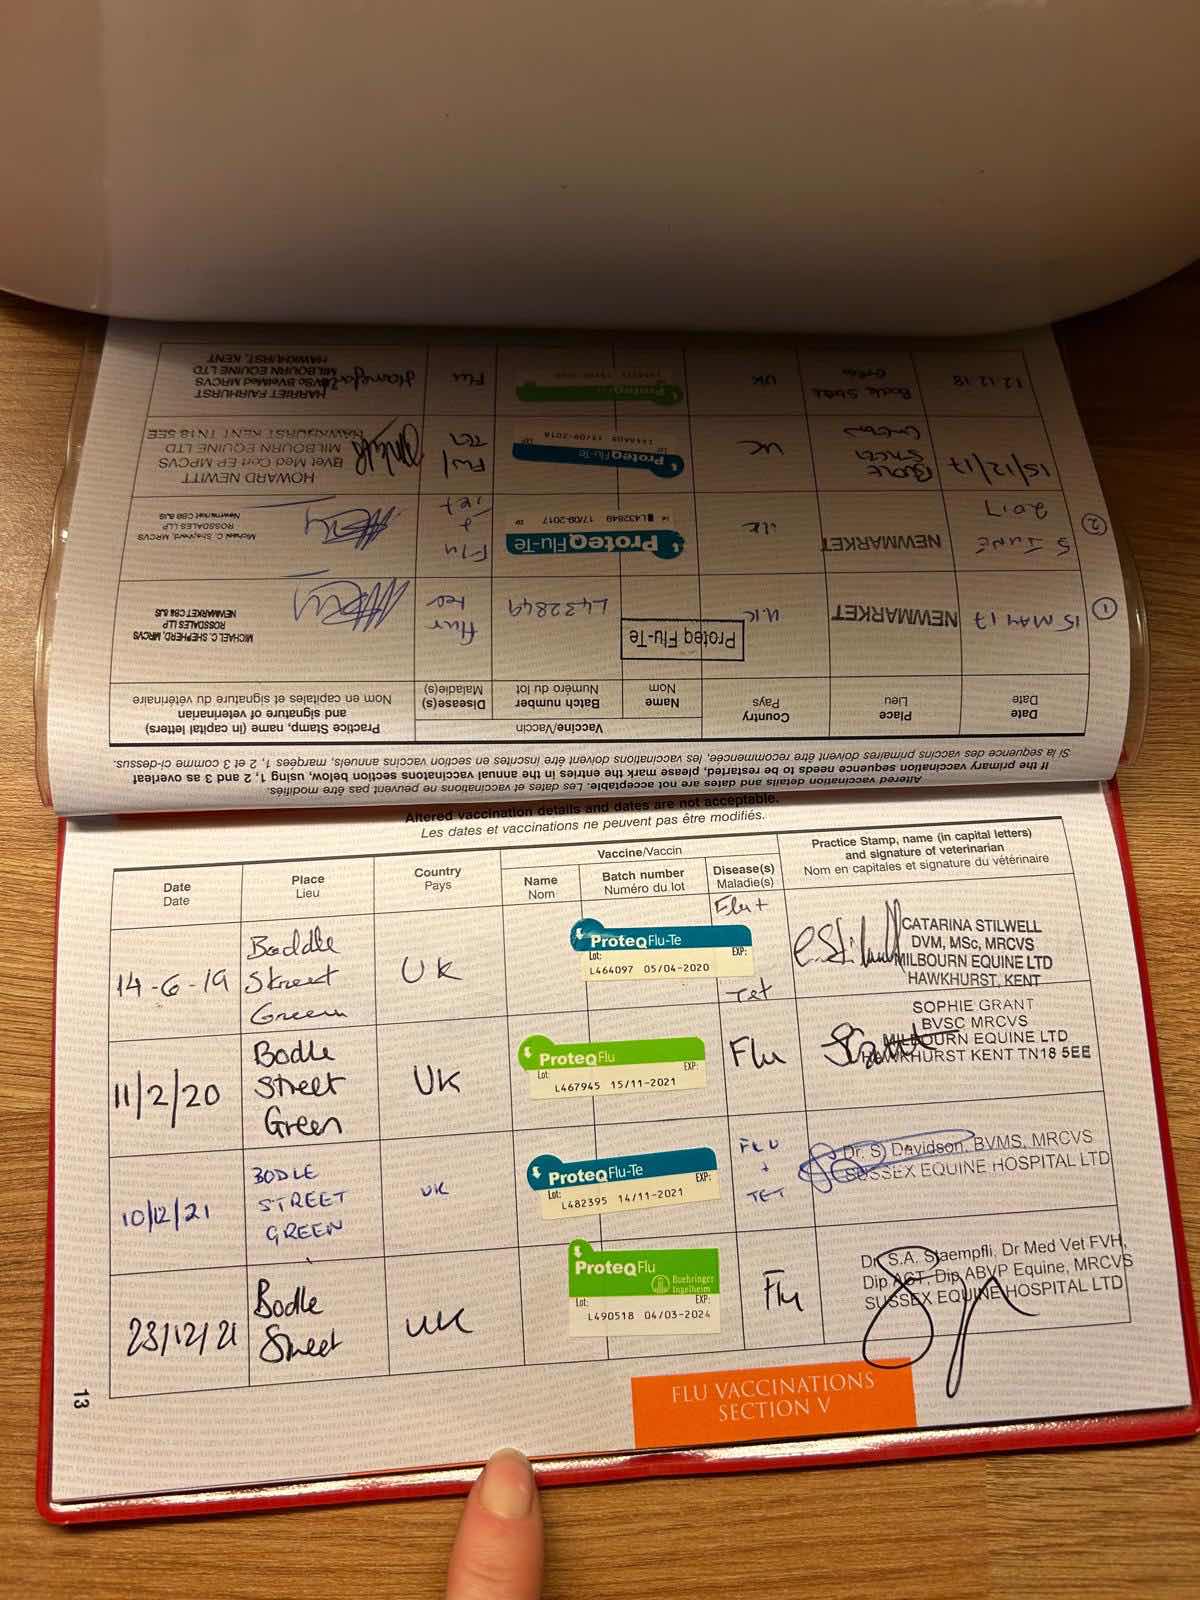 If the primary vaccination sequence needs to be restarted, please mark the entries in the annual vaccinations section below, using 1, 2 and 3 as overleaf
Si la séquence des vaccins primaires doivent être recommencée, les vaccinations doivent être inscrites en section vaccins annuels, marqées 1, 2 et 3 comme ci-dessus.
Altered vaccination details and dates are not acceptable. Les dates et vaccinations ne peuvent pas être modifiés.
Date
Date
Place
Lieu
Country
Pays
Vaccine/Vaccin
Name
Nom
Batch number
Numéro du lot
Disease(s)
Maladie(s)
Practice Stamp, name (in capital letters)
and signature of veterinarian
Nom en capitales et signature du vétérinaire
1
15 MAY 17
NEWMARKET
U.K
Proteq Flu-Te
L432849
MICHAEL C. SHEPHERD, MRCVS
ROSSDALES LLP
NEWMARKET CB8 8JS
2
5 JUNE
2017
NEWMARKET
UK
ProteqFlu-Te
L432849 17/09-2017
Flu
+
Tet
ROSSDALES LLP
Newmarket CB8 8JS
15/12/17
BODLE
STREET
GREEN
UK
ProteqFlu-Te
Flu/
TET
HOWARD NEWITT
BVet Med Cert EP MRCVS
MILBOURN EQUINE LTD
HAWKHURST KENT TN18 5EE
12.12.18
Bodle Street
Green
UK
ProteqFlu
Flu
HARRIET FAIRHURST
BVSc BVetMed MRCVS
MILBOURN EQUINE LTD
HAWKHURST, KENT
Altered vaccination details and dates are not acceptable.
Les dates et vaccinations ne peuvent pas être modifiés.
Date
Date
Place
Lieu
Country
Pays
Vaccine/Vaccin
Name
Nom
Batch number
Numéro du lot
Disease(s)
Maladie(s)
Practice Stamp, name (in capital letters)
and signature of veterinarian
Nom en capitales et signature du vétérinaire
14-6-19
Boddle
Street
Green
UK
ProteqFlu-Te
Lot: EXP:
L464097 05/04-2020
Flu+
Tet
C. Stilwell
CATARINA STILWELL
DVM, MSc, MRCVS
MILBOURN EQUINE LTD
HAWKHURST, KENT
11/2/20
Bodle
Street
Green
UK
ProteqFlu
Lot: EXP:
L467945 15/11-2021
Flu
SOPHIE GRANT
BVSC MRCVS
MILBOURN EQUINE LTD
HAWKHURST KENT TN18 5EE
10/12/21
BODLE
STREET
GREEN
UK
ProteqFlu-Te
Lot: EXP:
L482395 14/11-2021
FLU
+
TET
Dr. S) Davidson, BVMS, MRCVS
SUSSEX EQUINE HOSPITAL LTD
23/12/21
Bodle
Street
UK
ProteqFlu
Boehringer
Ingelheim
Lot: EXP:
L490518 04/03-2024
Flu
Dr. S.A. Staempfli, Dr Med Vet FVH,
Dip ACT, Dip ABVP Equine, MRCVS
SUSSEX EQUINE HOSPITAL LTD
13
FLU VACCINATIONS
SECTION V